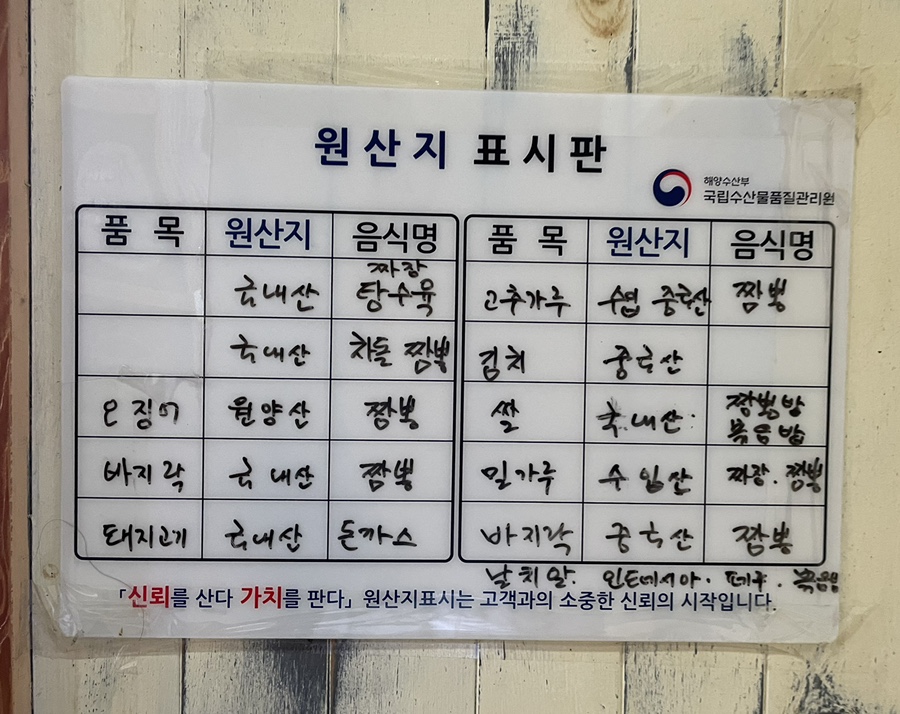 원산지 표시판
해양수산부
국립수산물품질관리원
품 목 원산지 음식명
국내산 짜장 탕수육
국내산 차돌 짬뽕
오징어 원양산 짬뽕
바지락 국내산 짬뽕
돼지고기 국내산 돈까스
품 목 원산지 음식명
고추가루 수입 중국산 짬뽕
김치 중국산
쌀 국내산 짬뽕밥 볶음밥
밀가루 수입산 짜장. 짬뽕
바지락 중국산 짬뽕
날치알. 인도네시아.
「신뢰를 산다 가치를 판다」 원산지표시는 고객과의 소중한 신뢰의 시작입니다.